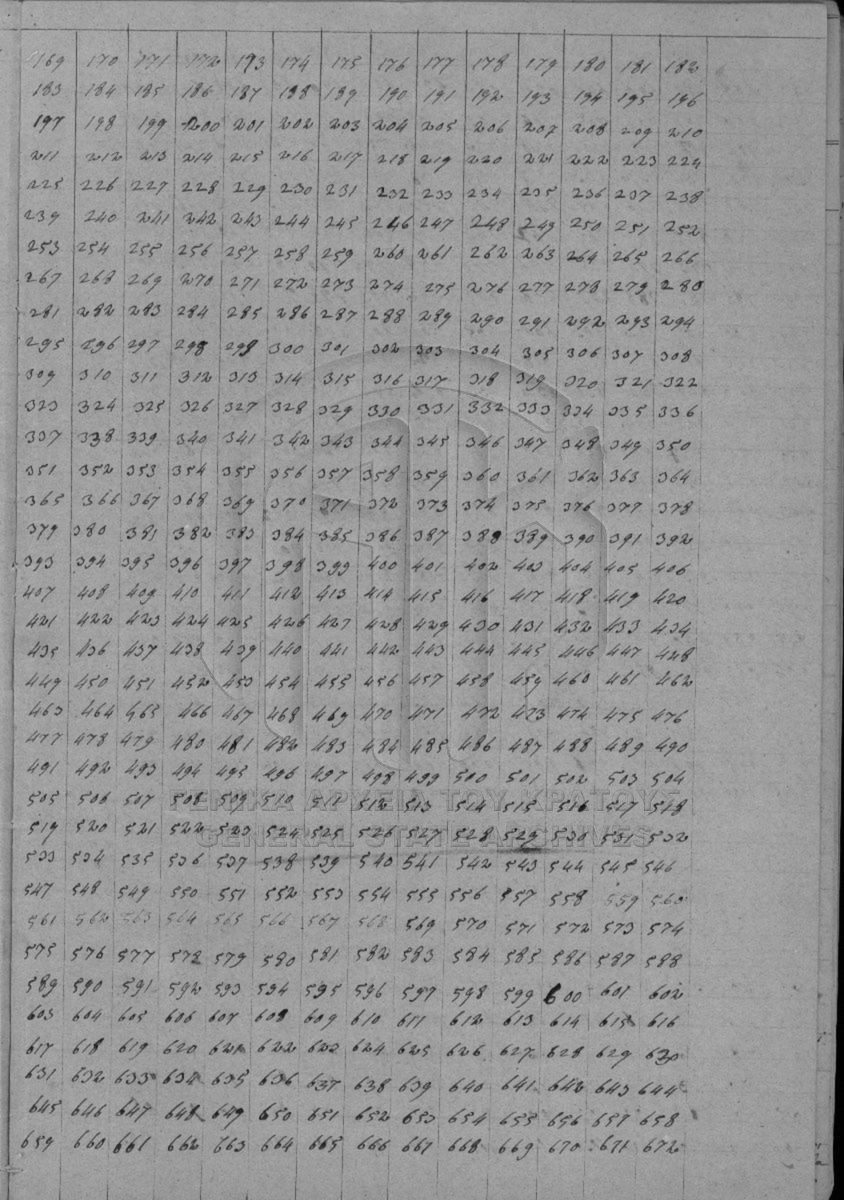 169 170 171 172 173 174 175 176 177 178 179 180 181 182
183 184 185 186 187 188 189 190 191 192 193 194 195 196
197 198 199 200 201 202 203 204 205 206 207 208 209 210
211 212 213 214 215 216 217 218 219 220 221 222 223 224
225 226 227 228 229 230 231 232 233 234 235 236 237 238
239 240 241 242 243 244 245 246 247 248 249 250 251 252
253 254 255 256 257 258 259 260 261 262 263 264 265 266
267 268 269 270 271 272 273 274 275 276 277 278 279 280
281 282 283 284 285 286 287 288 289 290 291 292 293 294
295 296 297 298 299 300 301 302 303 304 305 306 307 308
309 310 311 312 313 314 315 316 317 318 319 320 321 322
323 324 325 326 327 328 329 330 331 332 333 334 335 336
337 338 339 340 341 342 343 344 345 346 347 348 349 350
351 352 353 354 355 356 357 358 359 360 361 362 363 364
365 366 367 368 369 370 371 372 373 374 375 376 377 378
379 380 381 382 383 384 385 386 387 388 389 390 391 392
393 394 395 396 397 398 399 400 401 402 403 404 405 406
407 408 409 410 411 412 413 414 415 416 417 418 419 420
421 422 423 424 425 426 427 428 429 430 431 432 433 434
435 436 437 438 439 440 441 442 443 444 445 446 447 448
449 450 451 452 453 454 455 456 457 458 459 460 461 462
463 464 465 466 467 468 469 470 471 472 473 474 475 476
477 478 479 480 481 482 483 484 485 486 487 488 489 490
491 492 493 494 495 496 497 498 499 500 501 502 503 504
505 506 507 508 509 510 511 512 513 514 515 516 517 518
519 520 521 522 523 524 525 526 527 528 529 530 531 532
533 534 535 536 537 538 539 540 541 542 543 544 545 546
547 548 549 550 551 552 553 554 555 556 557 558 559 560
561 562 563 564 565 566 567 568 569 570 571 572 573 574
575 576 577 578 579 580 581 582 583 584 585 586 587 588
589 590 591 592 593 594 595 596 597 598 599 600 601 602
603 604 605 606 607 608 609 610 611 612 613 614 615 616
617 618 619 620 621 622 623 624 625 626 627 628 629 630
631 632 633 634 635 636 637 638 639 640 641 642 643 644
645 646 647 648 649 650 651 652 653 654 655 656 657 658
659 660 661 662 663 664 665 666 667 668 669 670 671 672
ΓΕΝΙΚΑ ΑΡΧΕΙΑ ΤΟΥ ΚΡΑΤΟΥΣ
GENERAL STATE ARCHIVES